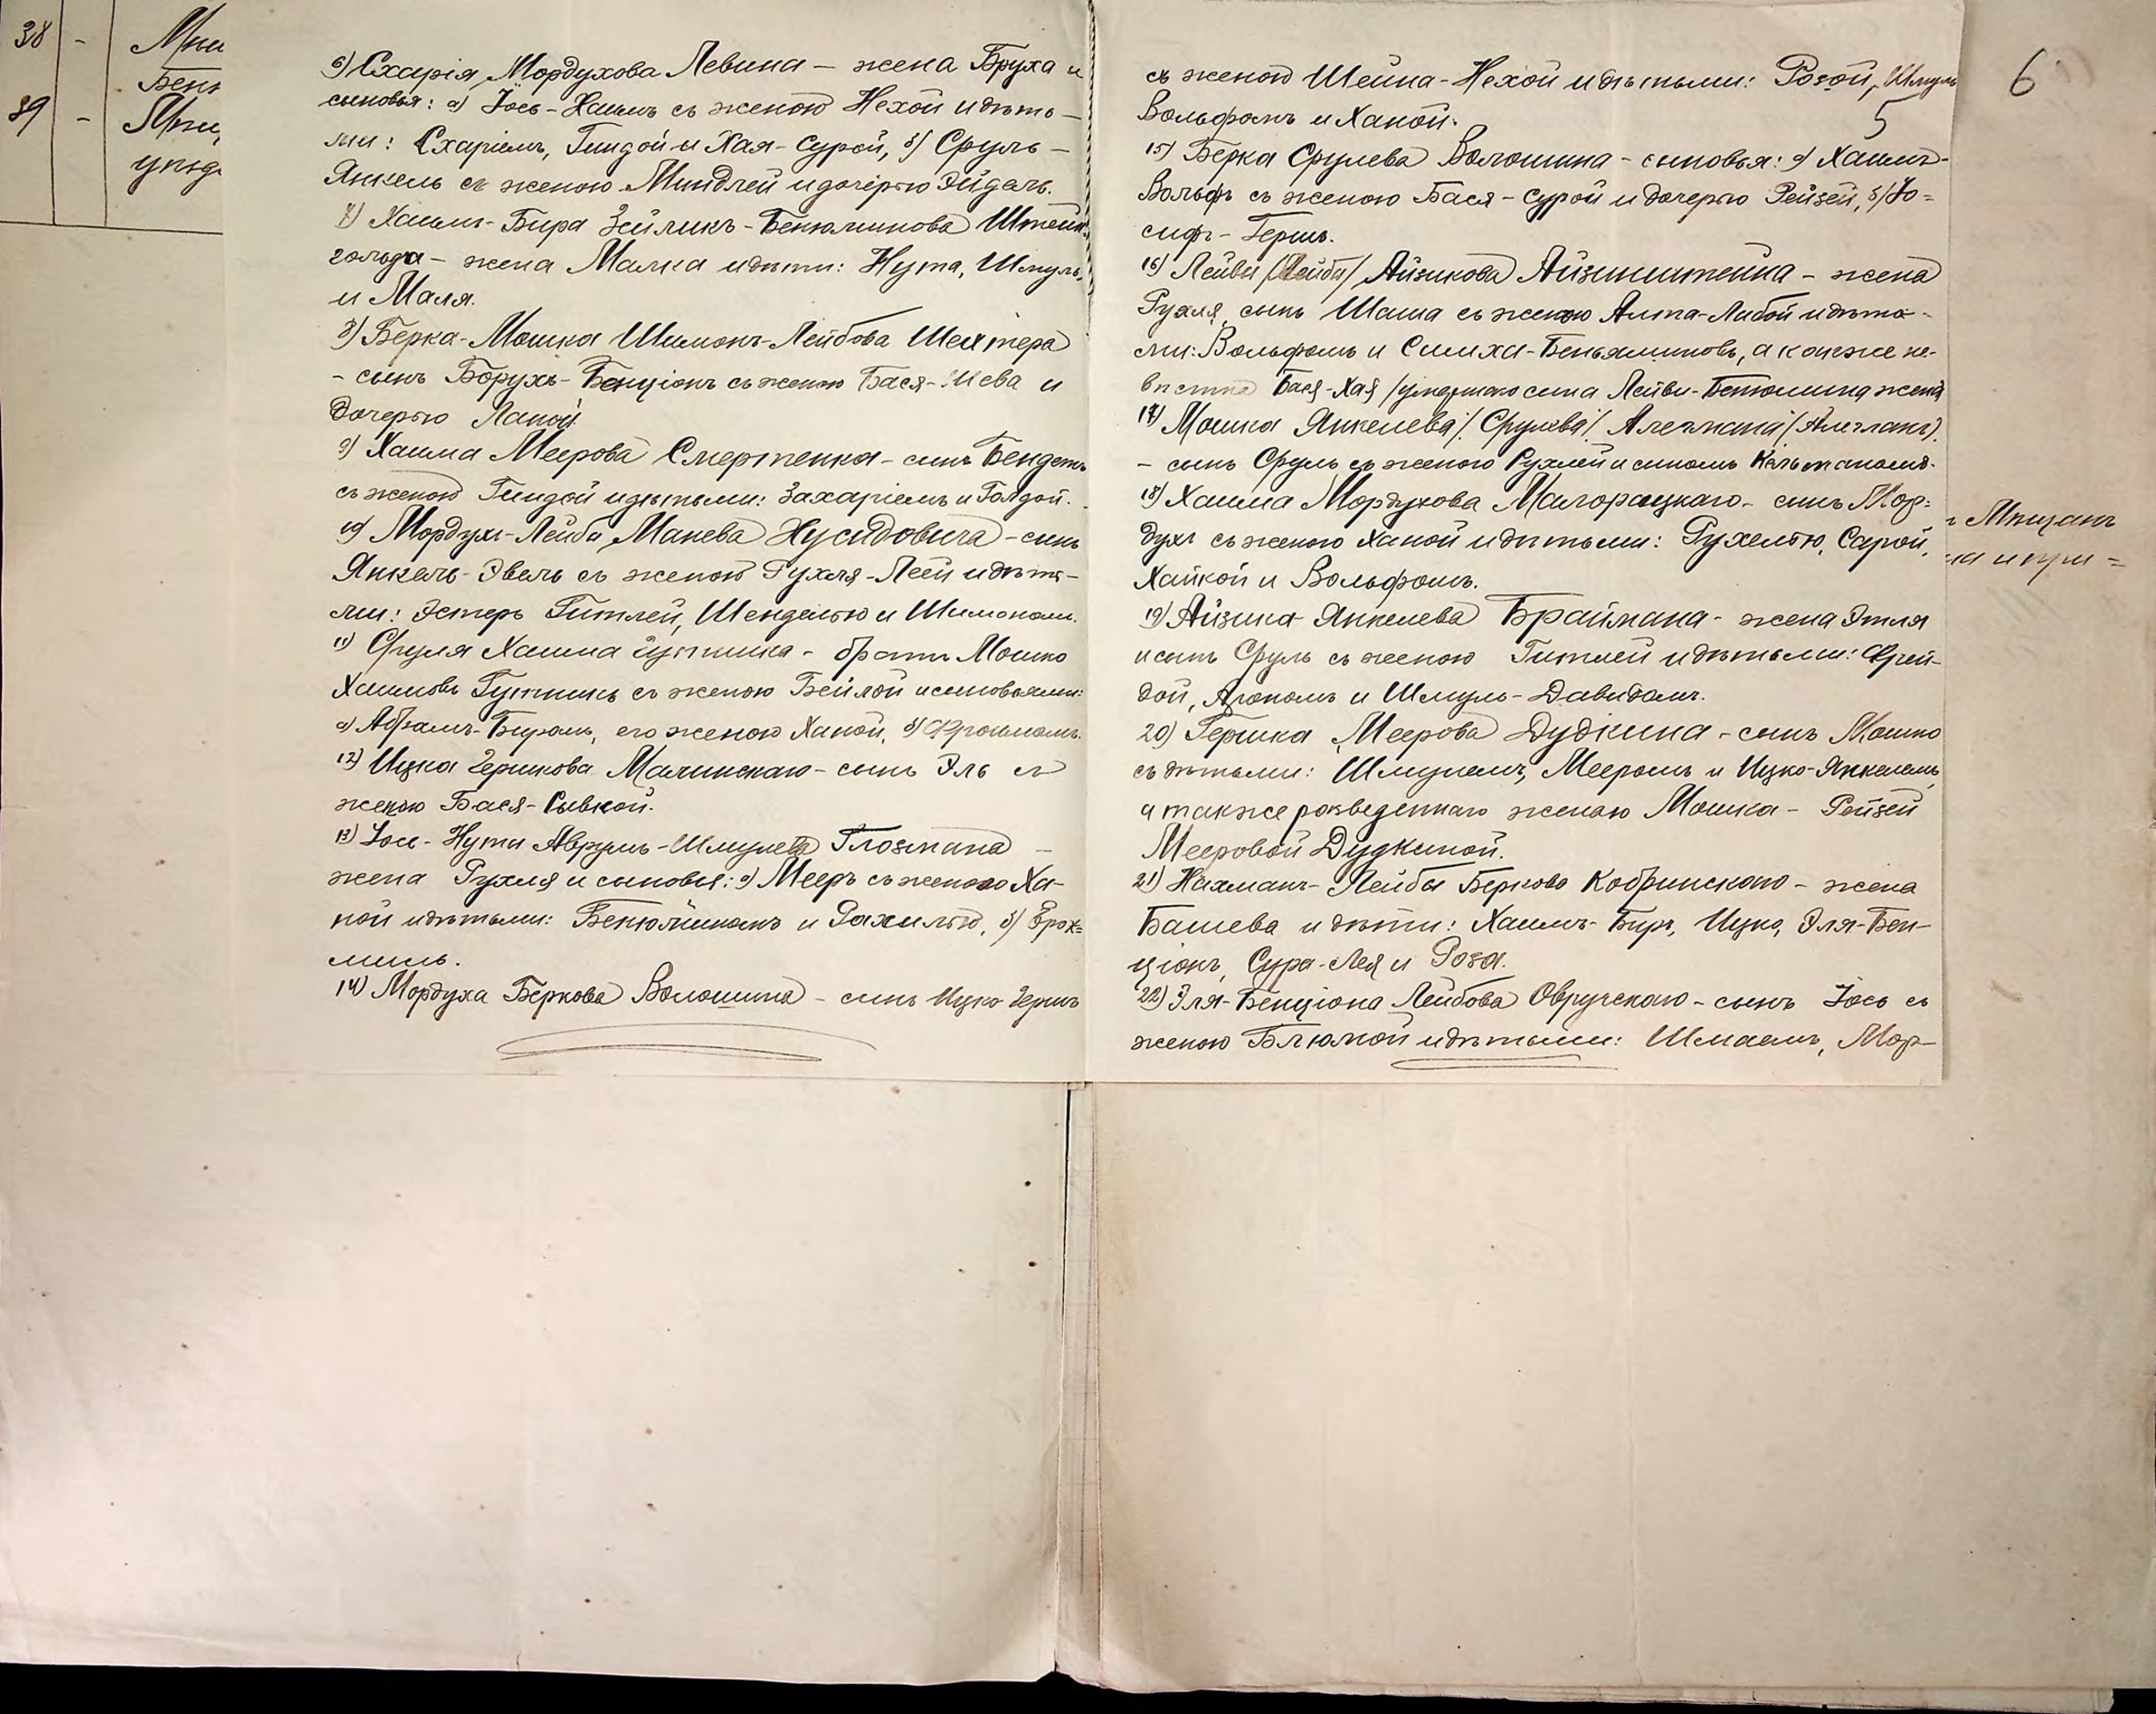 38 - Мѣщ
Бень
39 - Мѣщ
уѣзд
6) Схарія Мордухова Левина – жена Бруха и
сыновья: а) Іось-Хаимъ съ женою Нехой и дѣть-
ми: Схаріемъ, Гиндой и Хая-Сурой, б) Сруль-
Янкель съ женою Миндлей и дочерью Эйдель.
7) Хаимъ-Бира Зейликъ-Бенюминова Штейн-
гольда – жена Малка и дѣти: Нута, Шмуль
и Маля.
8) Берка-Мошка Шимонъ-Лейбова Шехтера
– сынъ Борухъ-Бенціонъ съ женою Бася-Шева и
дочерью Ханой.
9) Хаима Меерова Смертенка – сынъ Бендетъ
съ женою Гиндой и дѣтьми: Захаріемъ и Голдой.
10) Мордухъ-Лейба Манева Нусидовича – сынъ
Янкель-Эвель съ женою Рухля-Леей и дѣть-
ми: Эстеръ Гитлей, Шенделью и Шимономъ.
11) Сруля Хаима Гутника – братъ Мошко
Хаимовъ Гутникъ съ женою Бейлой и сыновьями:
а) Абрамъ-Биромъ, его женою Ханой, б) Фроимомъ.
12) Ицка Гершкова Малинскаго – сынъ Эль съ
женою Бася-Сывкой.
13) Іось-Нута Аврумъ-Шмулева Глозмана –
жена Рухля и сыновья: а) Мееръ съ женою Ха-
ной и дѣтьми: Бенюминомъ и Рахилью, б) Ерох-
миль.
14) Мордуха Беркова Волошина – сынъ Ицко-Гершъ
6
5
съ женою Шейна-Нехой и дѣтьми: Розой, Шмуль
Вольфомъ и Ханой.
15) Берка Срулева Волошина – сыновья: а) Хаимъ-
Вольфъ съ женою Бася-Сурой и дочерью Рейзей, б) Іо-
сифъ-Гершъ.
16) Лейви /Лейба/ Айзикова Айзинштейна – жена
Рухля, сынъ Шаша съ женою Алта-Либой и дѣть-
ми: Вольфомъ и Симха-Беньяминовъ, а также не-
вѣстка Бася-Хая /умершаго сына Лейви-Бенюмина жена
17) Мошка Янкелева /Срулева/ Алегмана /Алегланъ/.
– сынъ Сруль съ женою Рухлей и сыномъ Кальманомъ.
18) Хаима Мордухова Малорацкаго – сынъ Мор-
духъ съ женою Ханой и дѣтьми: Рухелью, Сарой,
Хайкой и Вольфомъ.
19) Айзика Янкелева Браймана – жена Этля
и сынъ Сруль съ женою Гитлей и дѣтьми: Фрей-
дой, Арономъ и Шмуль-Давидомъ.
20) Гершка Меерова Дудкина – сынъ Мошко
съ дѣтьми: Шмулемъ, Мееромъ и Ицко-Янкелемъ,
а также розведенною женою Мошка – Рейзей
Мееровой Дудкиной.
21) Нахманъ-Лейбы Берково Кобринскаго – жена
Башева и дѣти: Хаимъ-Биръ, Ицко, Эля-Бен-
ціонъ, Сура-Лея и Роза.
22) Эля-Бенціона Лейбова Овручскаго – сынъ Іось съ
женою Блюмой и дѣтьми: Шмаемъ, Мор-
Мѣщанъ
на и при-